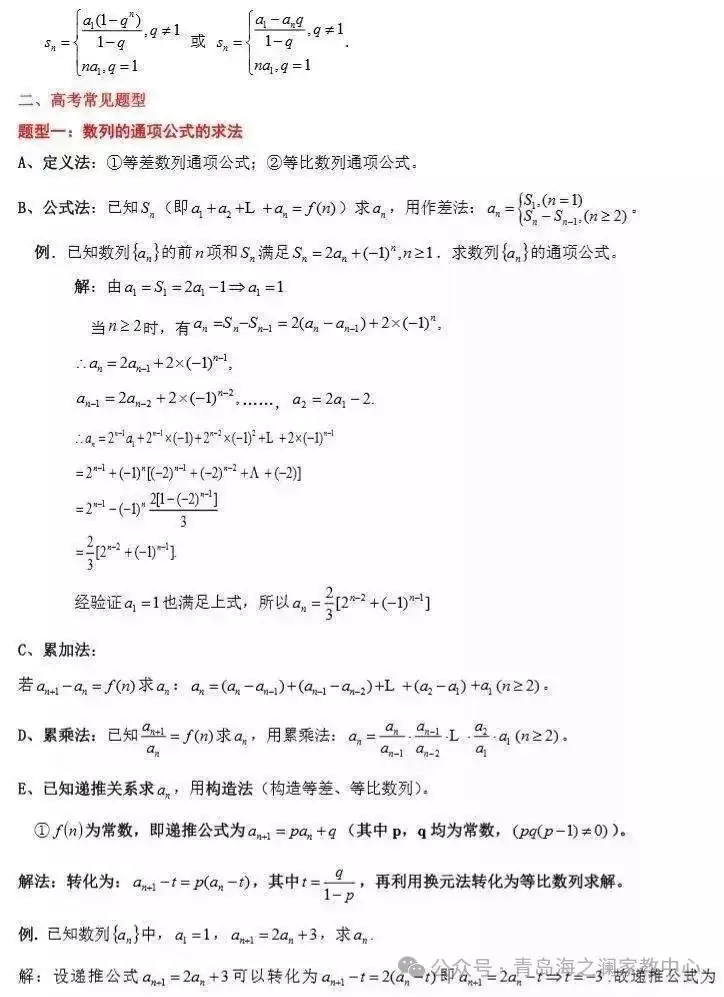 s_n = { a_1(1-q^n)/(1-q), q≠1; na_1, q=1 或 s_n = { (a_1-a_nq)/(1-q), q≠1; na_1, q=1 .
二、高考常见题型
题型一：数列的通项公式的求法
A、定义法：①等差数列通项公式；②等比数列通项公式。
B、公式法：已知S_n（即a_1+a_2+L +a_n=f(n)）求a_n，用作差法：a_n={S_1,(n=1); S_n-S_{n-1},(n≥2)。
例．已知数列{a_n}的前n项和S_n满足S_n=2a_n+(-1)^n,n≥1．求数列{a_n}的通项公式。
解：由a_1=S_1=2a_1-1⇒a_1=1
当n≥2时，有a_n=S_n-S_{n-1}=2(a_n-a_{n-1})+2×(-1)^n,
∴a_n=2a_{n-1}+2×(-1)^{n-1},
a_{n-1}=2a_{n-2}+2×(-1)^{n-2},……，a_2=2a_1-2.
∴a_n=2^{n-1}a_1+2^{n-1}×(-1)+2^{n-2}×(-1)^2+L +2×(-1)^{n-1}
=2^{n-1}+(-1)^n[(-2)^{n-1}+(-2)^{n-2}+Λ+(-2)]
=2^{n-1}-(-1)^n 2[1-(-2)^{n-1}]/3
=2/3[2^{n-2}+(-1)^{n-1}].
经验证a_1=1也满足上式，所以a_n=2/3[2^{n-2}+(-1)^{n-1}]
C、累加法：
若a_{n+1}-a_n=f(n)求a_n：a_n=(a_n-a_{n-1})+(a_{n-1}-a_{n-2})+L +(a_2-a_1)+a_1(n≥2)。
D、累乘法：已知a_{n+1}/a_n=f(n)求a_n，用累乘法：a_n=a_n/a_{n-1}·a_{n-1}/a_{n-2}·L ·a_2/a_1·a_1(n≥2)。
E、已知递推关系求a_n，用构造法（构造等差、等比数列）。
①f(n)为常数，即递推公式为a_{n+1}=pa_n+q（其中p，q均为常数，(pq(p-1)≠0)）。
解法：转化为：a_{n+1}-t=p(a_n-t)，其中t=q/(1-p)，再利用换元法转化为等比数列求解。
例. 已知数列{a_n}中，a_1=1，a_{n+1}=2a_n+3，求a_n.
解：设递推公式a_{n+1}=2a_n+3可以转化为a_{n+1}-t=2(a_n-t)即a_{n+1}=2a_n-t⇒t=-3.故递推公式为
公众号·青岛海之澜家教中心